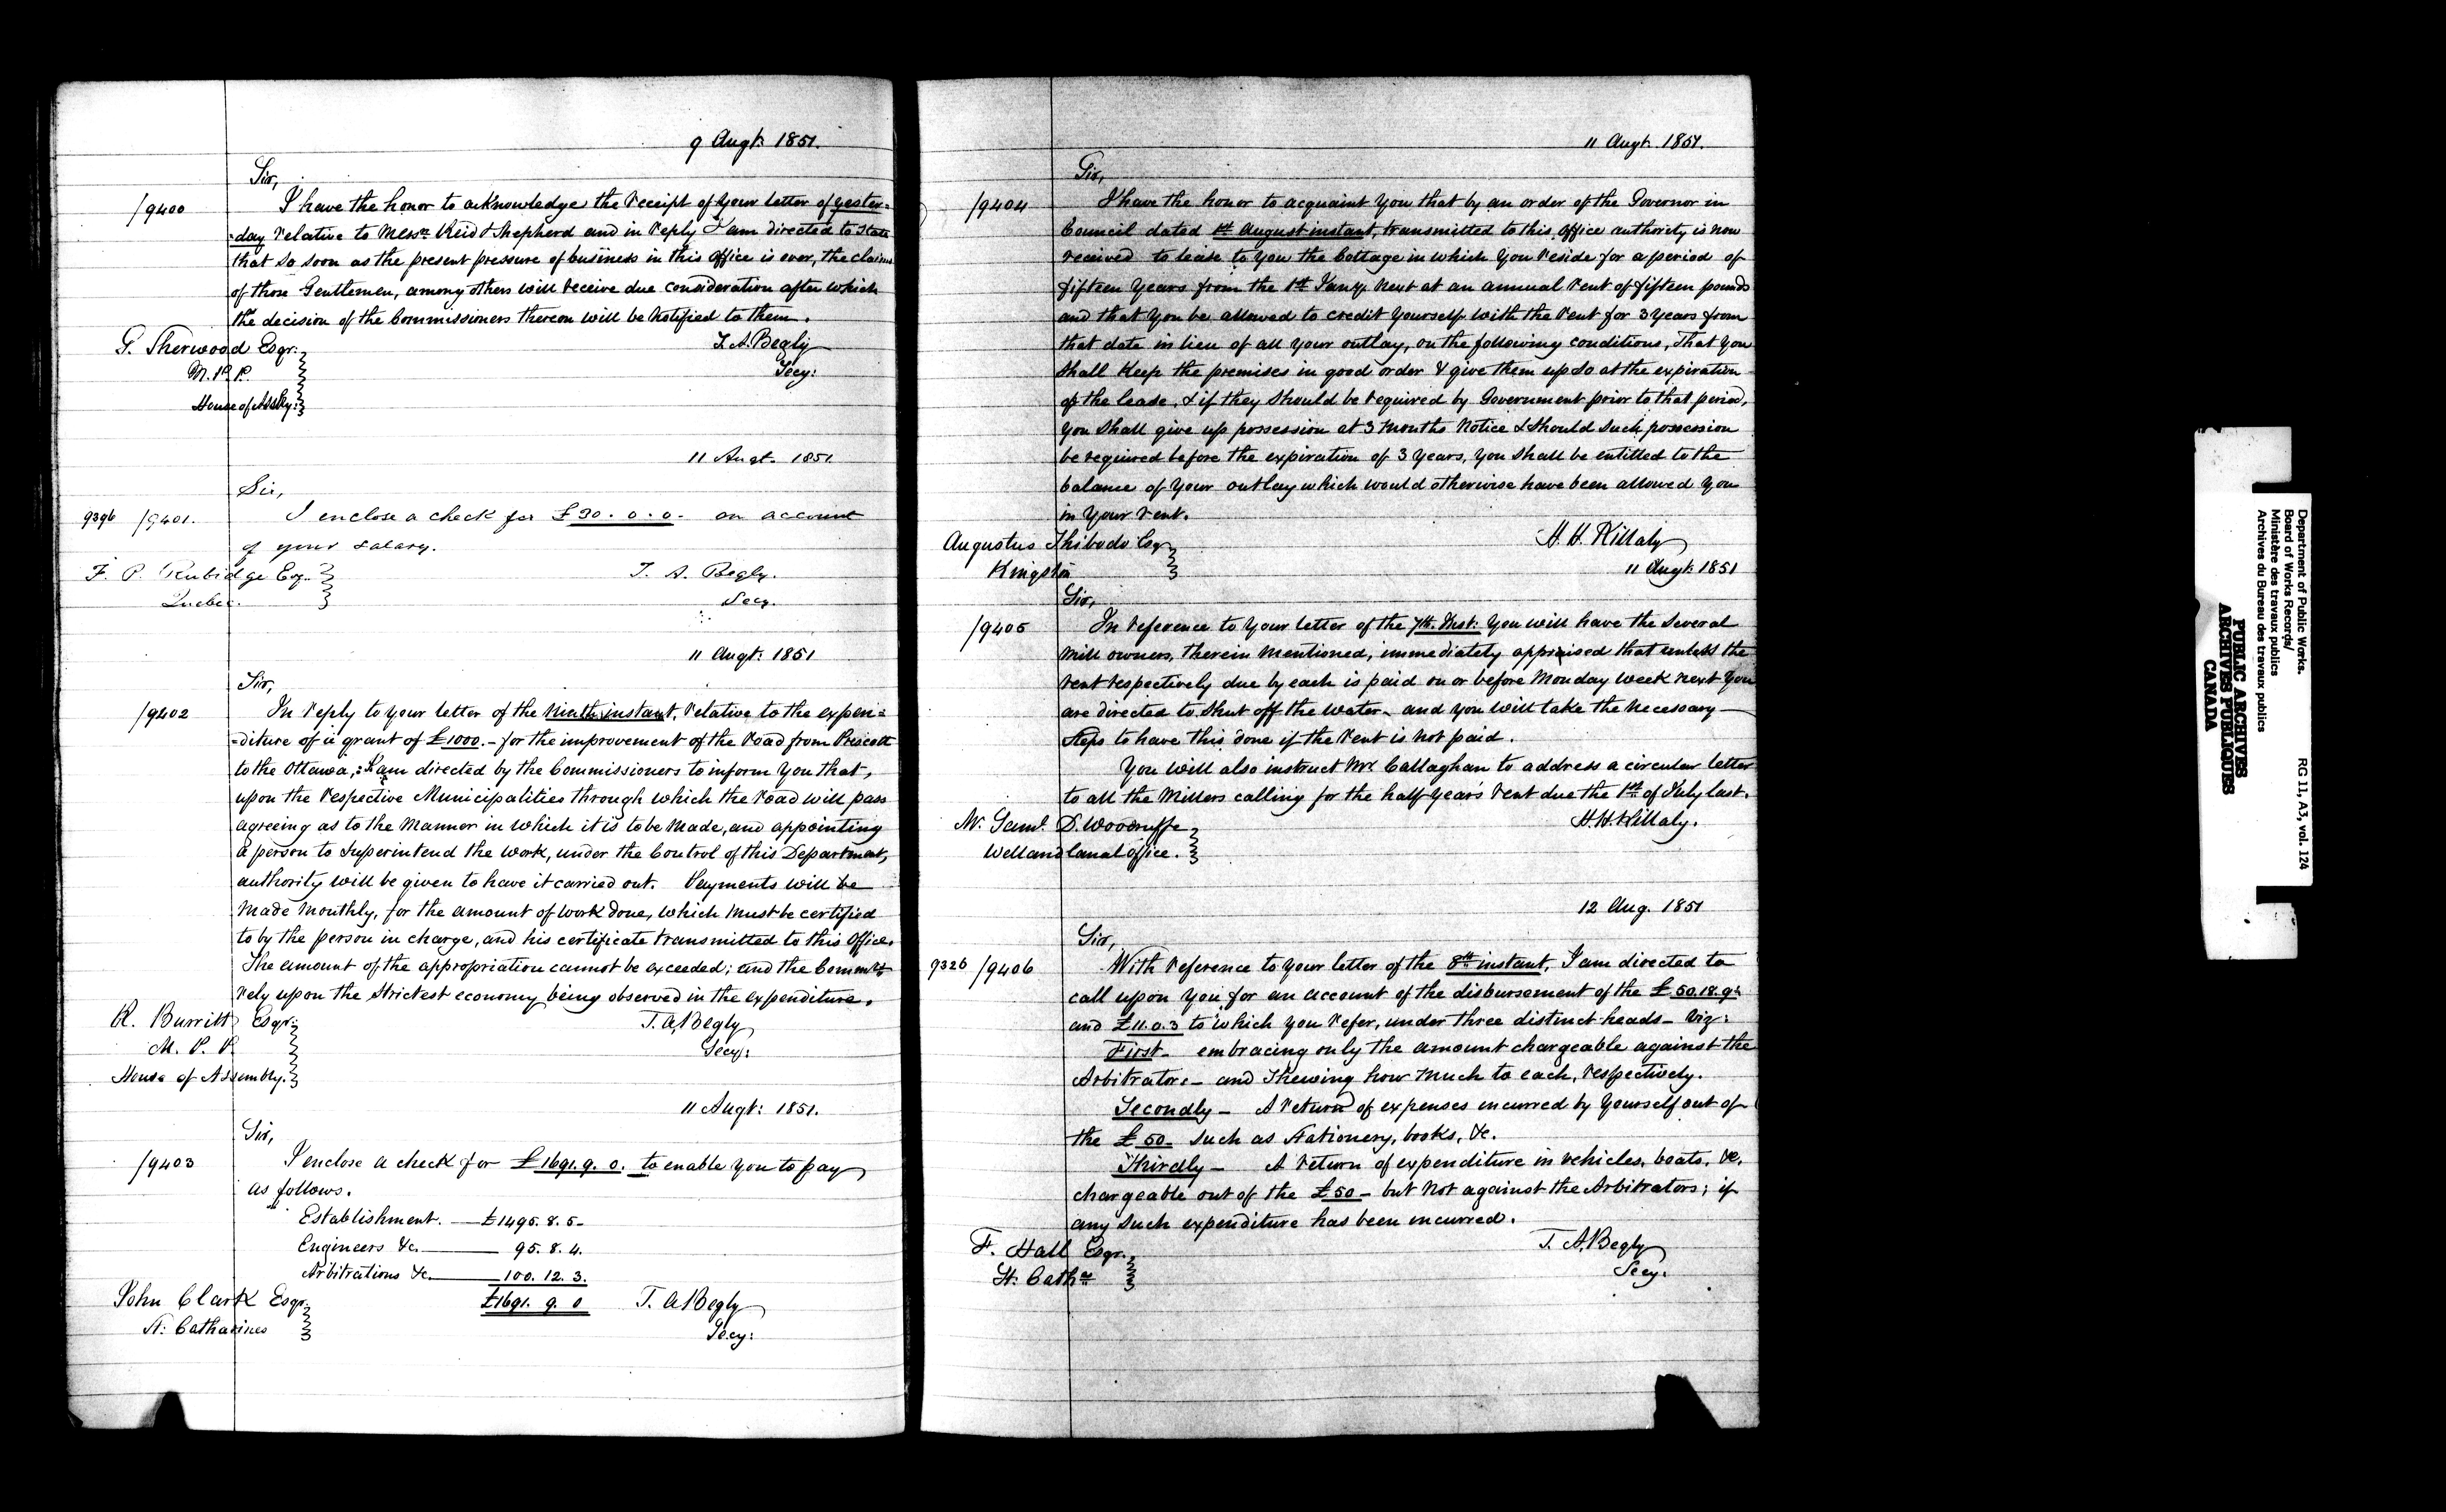 9 Augt: 1851.
Sir,
/9400 I have the honor to acknowledge the receipt of your letter of yester=
=day relative to Messrs Reid & Shepherd and in reply I am directed to State
that so soon as the present pressure of business in this Office is over, the claims
of those Gentlemen, among others will receive due consideration after which
the decision of the Commissioners thereon will be notified to them.
G. Sherwood Esqr. T. A. Begly
M. P. P. Secy:
House of Assbly:
11 Augt. 1851.
Sir,
9396 /9401. I enclose a check for £30.0.0. on account
of your salary.
F. P. Rubidge Esq. T. A. Begly.
Quebec. Secy.
11 Augt: 1851
Sir,
/9402 In reply to your letter of the ninth instant, relative to the expen=
=diture of a grant of £1000.- for the improvement of the road from Prescott
to the Ottawa,: I am directed by the Commissioners to inform you that,
upon the respective Municipalities through which the road will pass
agreeing as to the manner in which it is to be made, and appointing
a person to Superintend the work, under the Control of this Department,
authority will be given to have it carried out. Payments will be
made monthly, for the amount of work done, which must be certified
to by the person in charge, and his certificate transmitted to this Office.
The amount of the appropriation cannot be exceeded; and the Commrs
rely upon the strictest economy being observed in the expenditure.
R. Burritt Esqr. T. A. Begly
M. P. P. Secy:
House of Assembly.
11 Augt: 1851.
Sir,
/9403 I enclose a check for £1691.9.0. to enable you to pay
as follows.
Establishment. — £1495.8.5-
Engineers &c. — 95.8.4.
Arbitrations &c. — 100.12.3.
John Clark Esqr. £1691.9.0 T. A. Begly
St: Catharines Secy:
11 Augt. 1851.
Sir,
/9404 I have the honor to acquaint you that by an order of the Governor in
Council dated 1st August instant, transmitted to this office authority is now
received to lease to you the Cottage in which you reside for a period of
fifteen years from the 1st Jany. next at an annual rent of fifteen pounds
and that you be allowed to credit yourself with the rent for 3 years from
that date in lieu of all your outlay, on the following conditions, That you
shall keep the premises in good order & give them up so at the expiration
of the lease, & if they should be required by Government prior to that period,
you shall give up possession at 3 months notice & should such possession
be required before the expiration of 3 years, you shall be entitled to the
balance of your outlay which would otherwise have been allowed you
in your rent.
Augustus Thibodo Esqr H. H. Killaly
Kingston 11 Augt: 1851
Sir,
/9405 In reference to your letter of the 7th. Inst: you will have the several
mill owners, therein mentioned, immediately appraised that unless the
rent respectively due by each is paid on or before Monday week next you
are directed to shut off the water - and you will take the necessary
steps to have this done if the rent is not paid.
You will also instruct Mr Callaghan to address a circular letter
to all the Millers calling for the half-year's rent due the 1st of July last.
Mr. Saml. D. Woodruffe H. H. Killaly.
Welland Canal Office.
12 Aug. 1851
Sir,
9326 /9406 With reference to your letter of the 8th instant, I am directed to
call upon you for an account of the disbursement of the £50.18.9½
and £11.0.3 to which you refer, under three distinct heads - Viz:
First - embracing only the amount chargeable against the
Arbitrators - and shewing how much to each, respectively.
Secondly - A return of expenses incurred by yourself out of
the £50 - such as Stationery, books, &c.
Thirdly - A return of expenditure in vehicles, boats, &c.
chargeable out of the £50 - but not against the Arbitrators; if
any such expenditure has been incurred.
F. Hall Esqr. T. A. Begly
St. Caths Secy.
Department of Public Works.
Board of Works Records/
Ministère des travaux publics
Archives du Bureau des travaux publics
RG 11, A3, vol. 124
PUBLIC ARCHIVES
ARCHIVES PUBLIQUES
CANADA